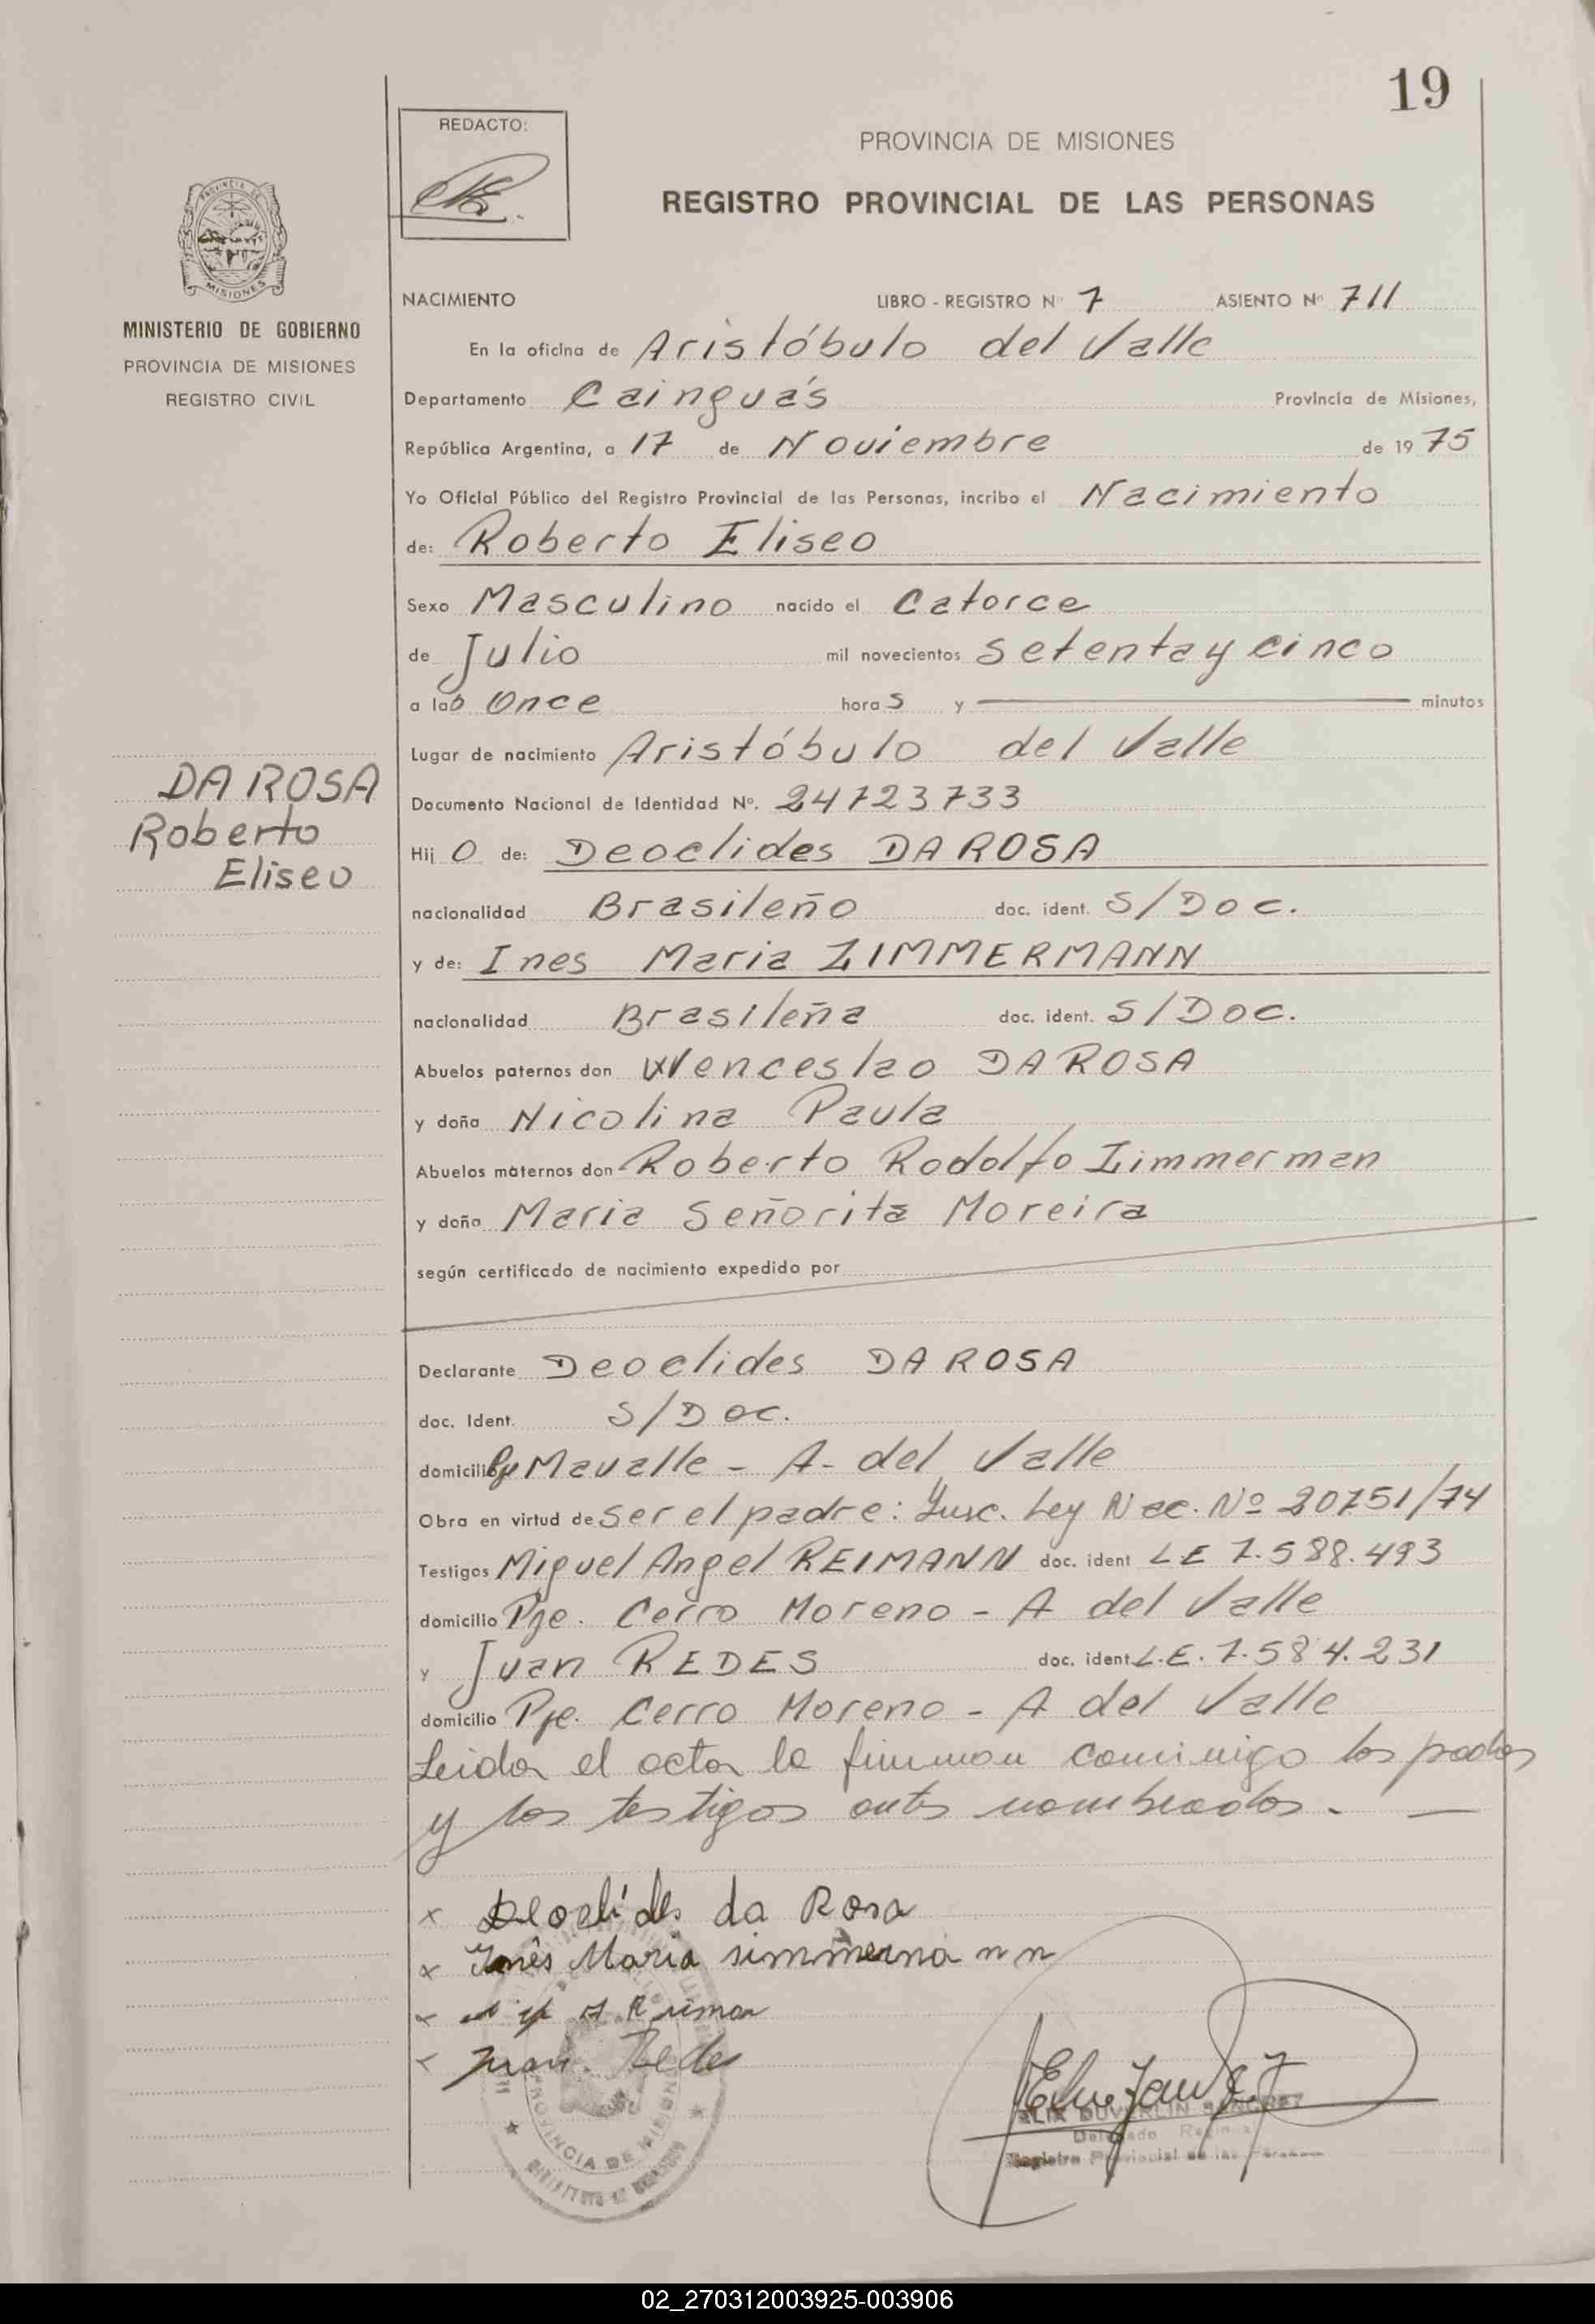 19
REDACTO:
PROVINCIA DE MISIONES
REGISTRO PROVINCIAL DE LAS PERSONAS
PROVINCIA DE
MISIONES
MINISTERIO DE GOBIERNO
PROVINCIA DE MISIONES
REGISTRO CIVIL
NACIMIENTO LIBRO - REGISTRO Nº 7 ASIENTO Nº 711
En la oficina de Aristóbulo del Valle
Departamento Cainguás Provincia de Misiones,
República Argentina, a 17 de Noviembre de 1975
Yo Oficial Público del Registro Provincial de las Personas, incribo el Nacimiento
de: Roberto Eliseo
Sexo Masculino nacido el Catorce
de Julio mil novecientos setenta y cinco
a las Once horas y minutos
Lugar de nacimiento Aristóbulo del Valle
DA ROSA
Roberto
Eliseo
Documento Nacional de Identidad Nº. 24723733
Hij o de: Deoclides DA ROSA
nacionalidad Brasileño doc. ident. S/Doc.
y de: Ines Maria ZIMMERMANN
nacionalidad Brasileña doc. ident. S/Doc.
Abuelos paternos don Wenceslao DA ROSA
y doña Nicolina Paula
Abuelos maternos don Roberto Rodolfo Zimmerman
y doña Maria Señorita Moreira
según certificado de nacimiento expedido por
Declarante Deoclides DA ROSA
doc. Ident. S/Doc.
domicilio Mavalle - A. del Valle
Obra en virtud de ser el padre: Insc. Ley Nac. Nº 20751/74
Testigos Miguel Angel REIMANN doc. ident LE 7.588.493
domicilio Pje. Cerro Moreno - A del Valle
y Juan REDES doc. ident L.E. 7.584.231
domicilio Pje. Cerro Moreno - A del Valle
Leida el acta la firman conmigo los padres
y los testigos antes nombrados. —
x Deoclides da Rosa
x Inês Maria simmermann
x
x Juan Redes
FELIX DUVERLIN SANCHEZ
Delegado
Registro Provincial de las Personas
PROVINCIA DE MISIONES
02_270312003925-003906